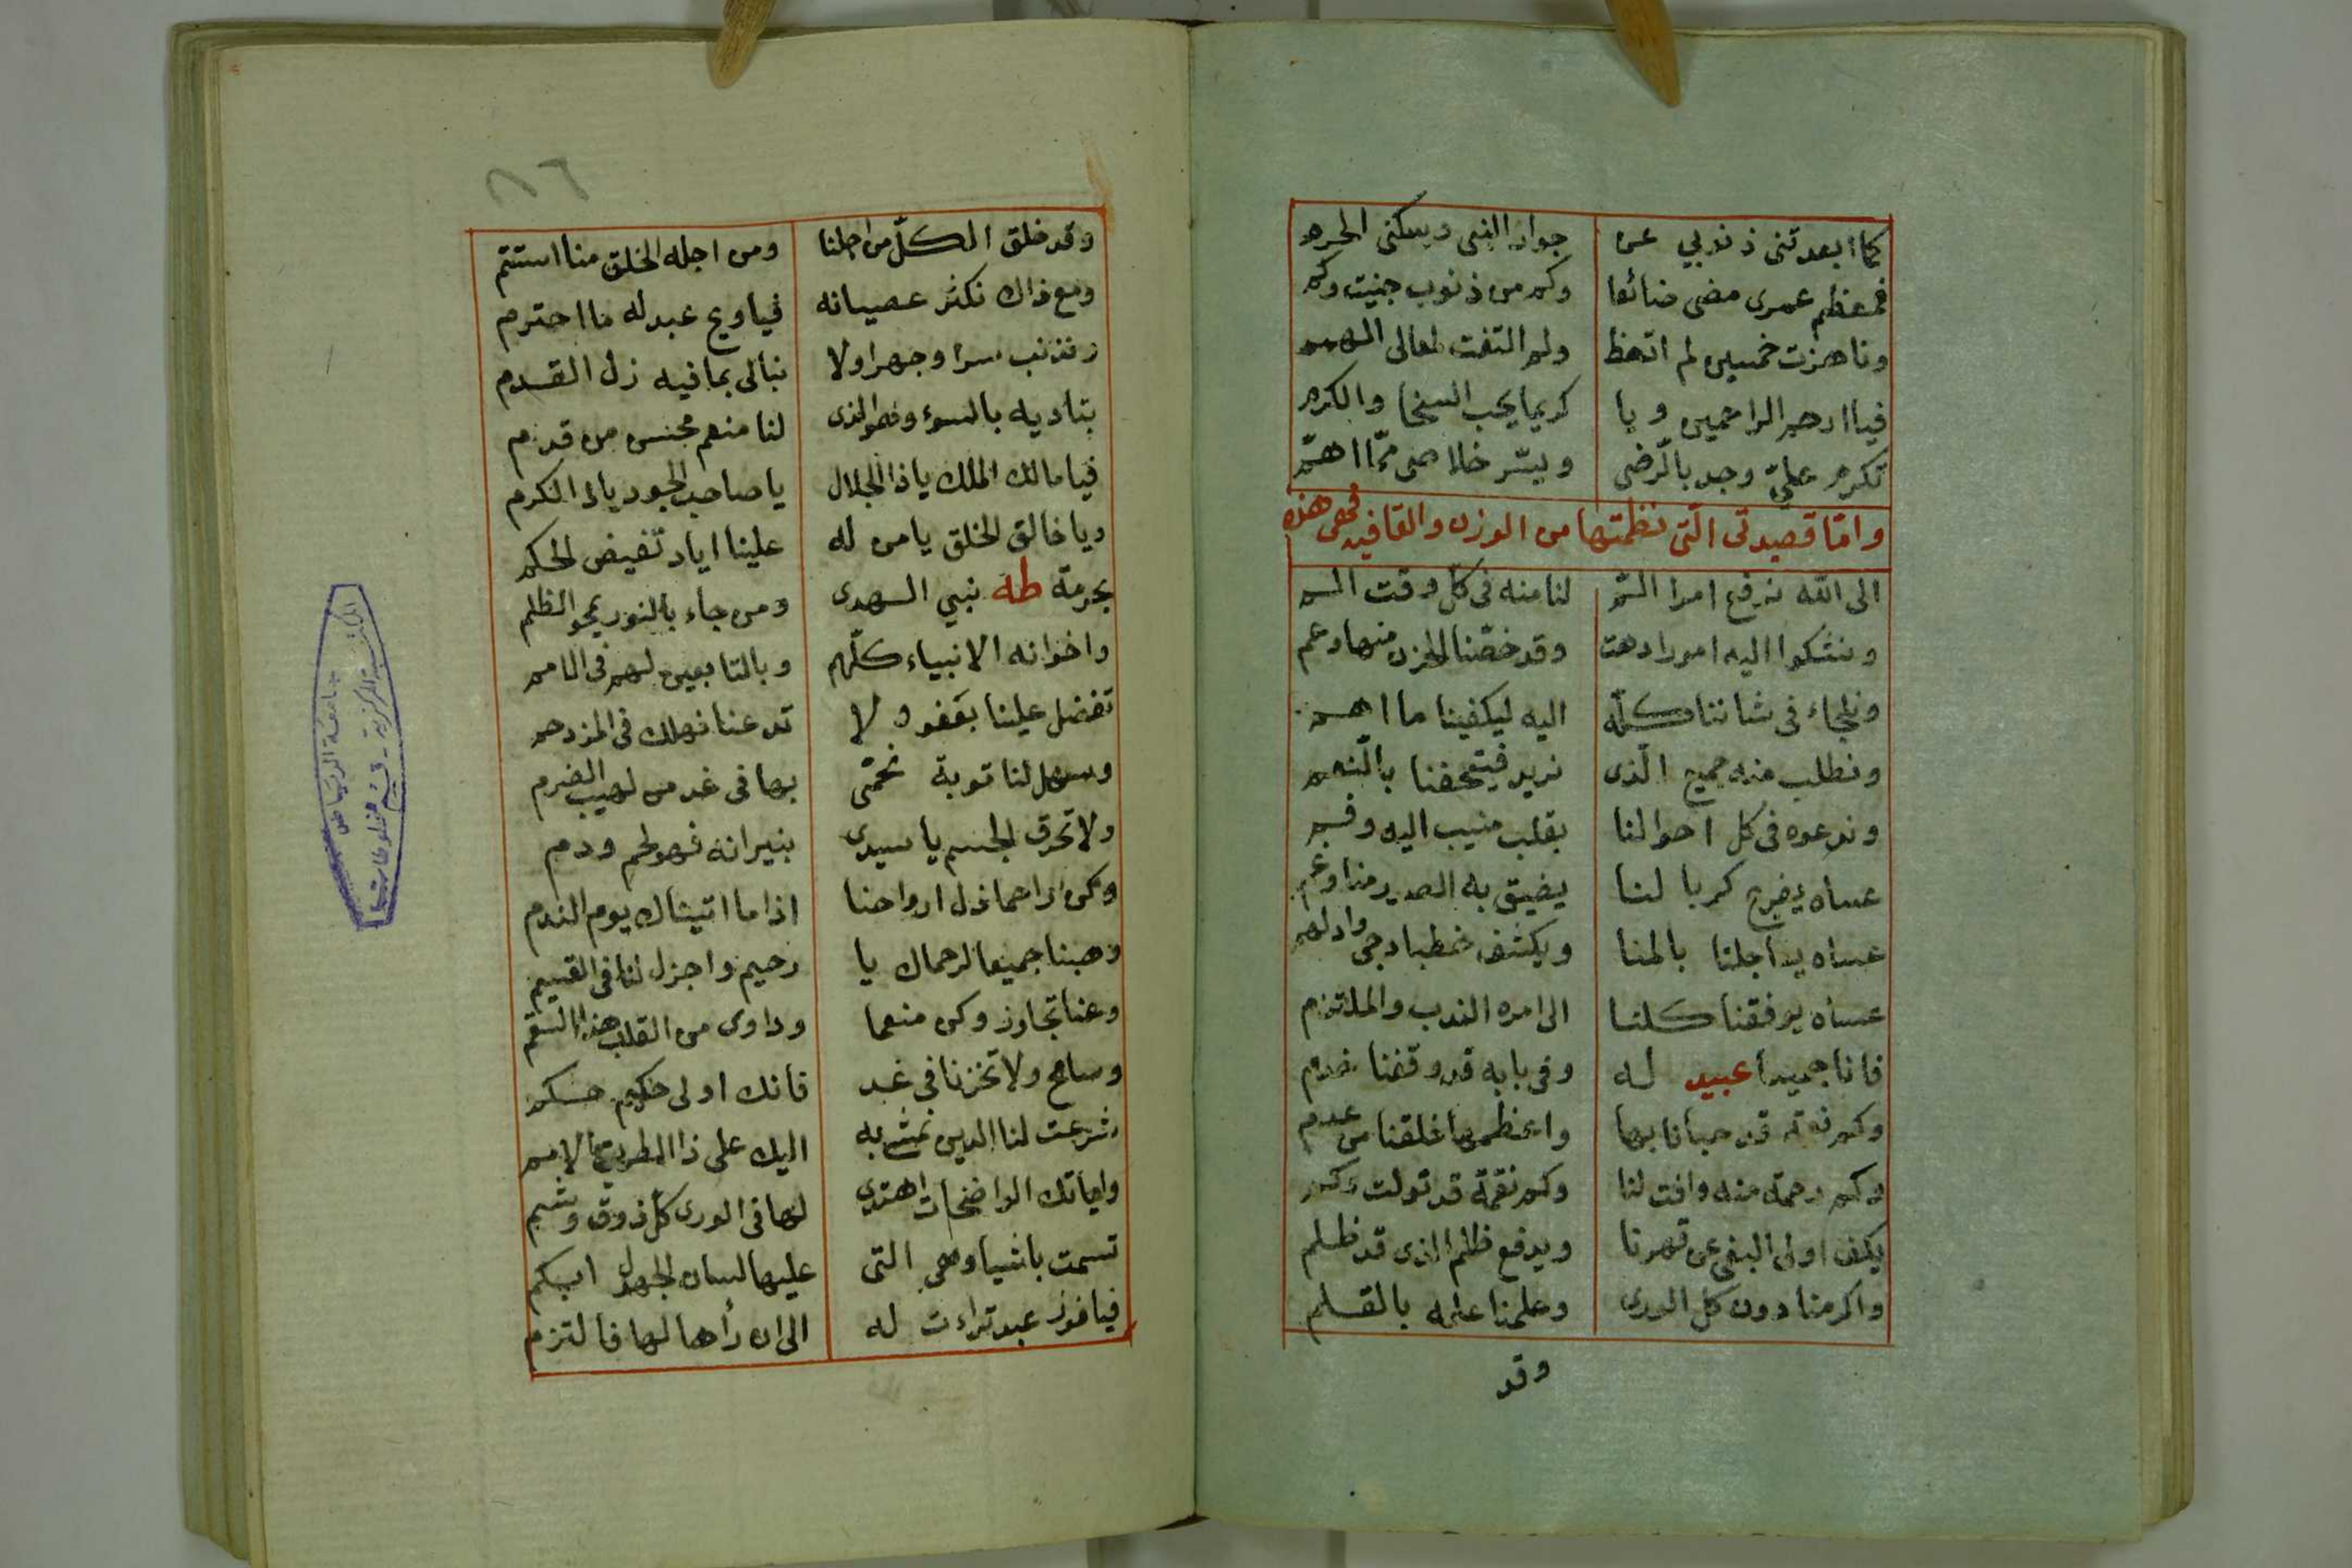 كما ابعدتنى ذنوبي عن جوار النبى ويسكنى الحرم
فمعظم عمرى مضى ضائعا وكم من ذنوب جنيت وكم
وناهزت خمسين لم اتعظ ولم التفت لمعالى الهمم
فيا ارحم الراحمين ويا كريما يحب السخا والكرم
تكرم عليّ وجد بالرضى ويسّر خلاصى ممّا اهمّ
وامّا قصيدتى الّتى نظمتها من الوزن والقافيه فهى هذه
الى الله نرفع امرا المّ لنا منه فى كلّ وقت الم
ونشكوا اليه امورا دهت وقد خصّنا الحزن منها وعم
ونلجاء فى شاننا كلّه اليه ليكفينا ما اهم
ونطلب منه جميع الّذى نريد فيتحفنا بالنعم
وندعوه فى كل احوالنا بقلب منيب اليه وفم
عساه يفرج كربا لنا يضيق به الصدر منا وغم
عساه بالمنا ويكشف خطبا دجى وادلهم
عساه يوفقنا كلنا الى امره الندب والملتزم
فانا جميعا عبيد له وفى بابه قد وقفنا خدم
وكم قد حبانا بها واعظمها خلقنا من عدم
وكم رحمة منه وافت لنا وكم نقمة قد تولت وكم
يكف اولى البغى عن قهرنا ويدفع ظلم الذى قد ظلم
واكرمنا دون كل الورى وعلمنا علمه بالقلم
وقد
٨٦
وقد خلق الكلّ من اجلنا ومن اجله الخلق منا استتم
ومع ذاك نكثر عصيانه فياويح عبد له ما احترم
ونذنب سرا وجهرا ولا نبالى بما فيه زل القدم
بناديه بالسوء وهو الذى لنا منعم محسن من قدم
فيا مالك الملك ياذا الجلال يا صاحب الجود يا ذا الكرم
ويا خالق الخلق يا من له علينا اياد تفيض الحكم
بحرمة طه نبي الهدى ومن جاء بالنور يمحو الظلم
واخوانه الانبياء كلّهم وبالتابعين لهم فى الامم
تفضل علينا بعفو ولا تدعنا نهلك فى المزدحم
وسهل لنا توبة نحتمى بها فى غد من لهيب الضرم
ولا تحرق الجسم يا سيدى بنيرانه فهو لحم ودم
وكن راحما ذل ارواحنا اذا ما اتيناك يوم الندم
وهبنا جميعا لرحماك يا رحيم واجزل لنا فى القسم
وعنا تجاوز وكن منعما وداوى من القلب هذا السقم
وسامح ولا تخزنا فى غد فانك اولى حكيم حكم
شرعت لنا الدين نمشى به اليك على ذا الطريق الامم
واياتك الواضحات اهتدى لها فى الورى كل ذوق وشم
تسمت باشيا وهى التى عليها لسان الجهل ابكم
فيا فوز عبد تراءت له الى ان رأها لها فالتزم
المكتبة المركزية - قسم المخطوطات
جامعة الرياض